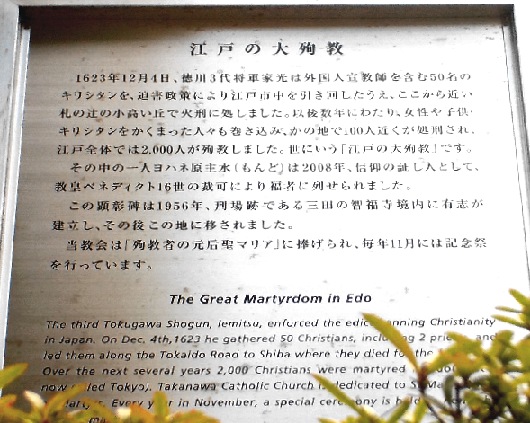 江戸の大殉教
1623年12月4日、徳川3代将軍家光は外国人宣教師を含む50名の
キリシタンを、迫害政策により江戸市中を引き回したうえ、ここから近い
札の辻の小高い丘で火刑に処しました。以後数年にわたり、女性や子供・
キリシタンをかくまった人々も巻き込み、かの地で100人近くが処刑され、
江戸全体では2,000人が殉教しました。世にいう「江戸の大殉教」です。
その中の一人ヨハネ原主水(もんど)は2008年、信仰の証し人として、
教皇ベネディクト16世の裁可により福者に列せられました。
この顕彰碑は1956年、刑場跡である三田の智福寺境内に有志が
建立し、その後この地に移されました。
当教会は「殉教者の元后聖マリア」に捧げられ、毎年11月には記念祭
を行っています。
The Great Martyrdom in Edo
The third Tokugawa Shogun, Iemitsu, enforced the edict banning Christianity
in Japan. On Dec. 4th,1623 he gathered 50 Christians, including 2 priests and
led them along the Tokaido Road to Shiba where they died for the
Over the next several years 2,000 Christians were martyred
now called Tokyo). Takanawa Catholic Church is dedicated to St. Mary
Martyrs. Every year in November, a special ceremony is held